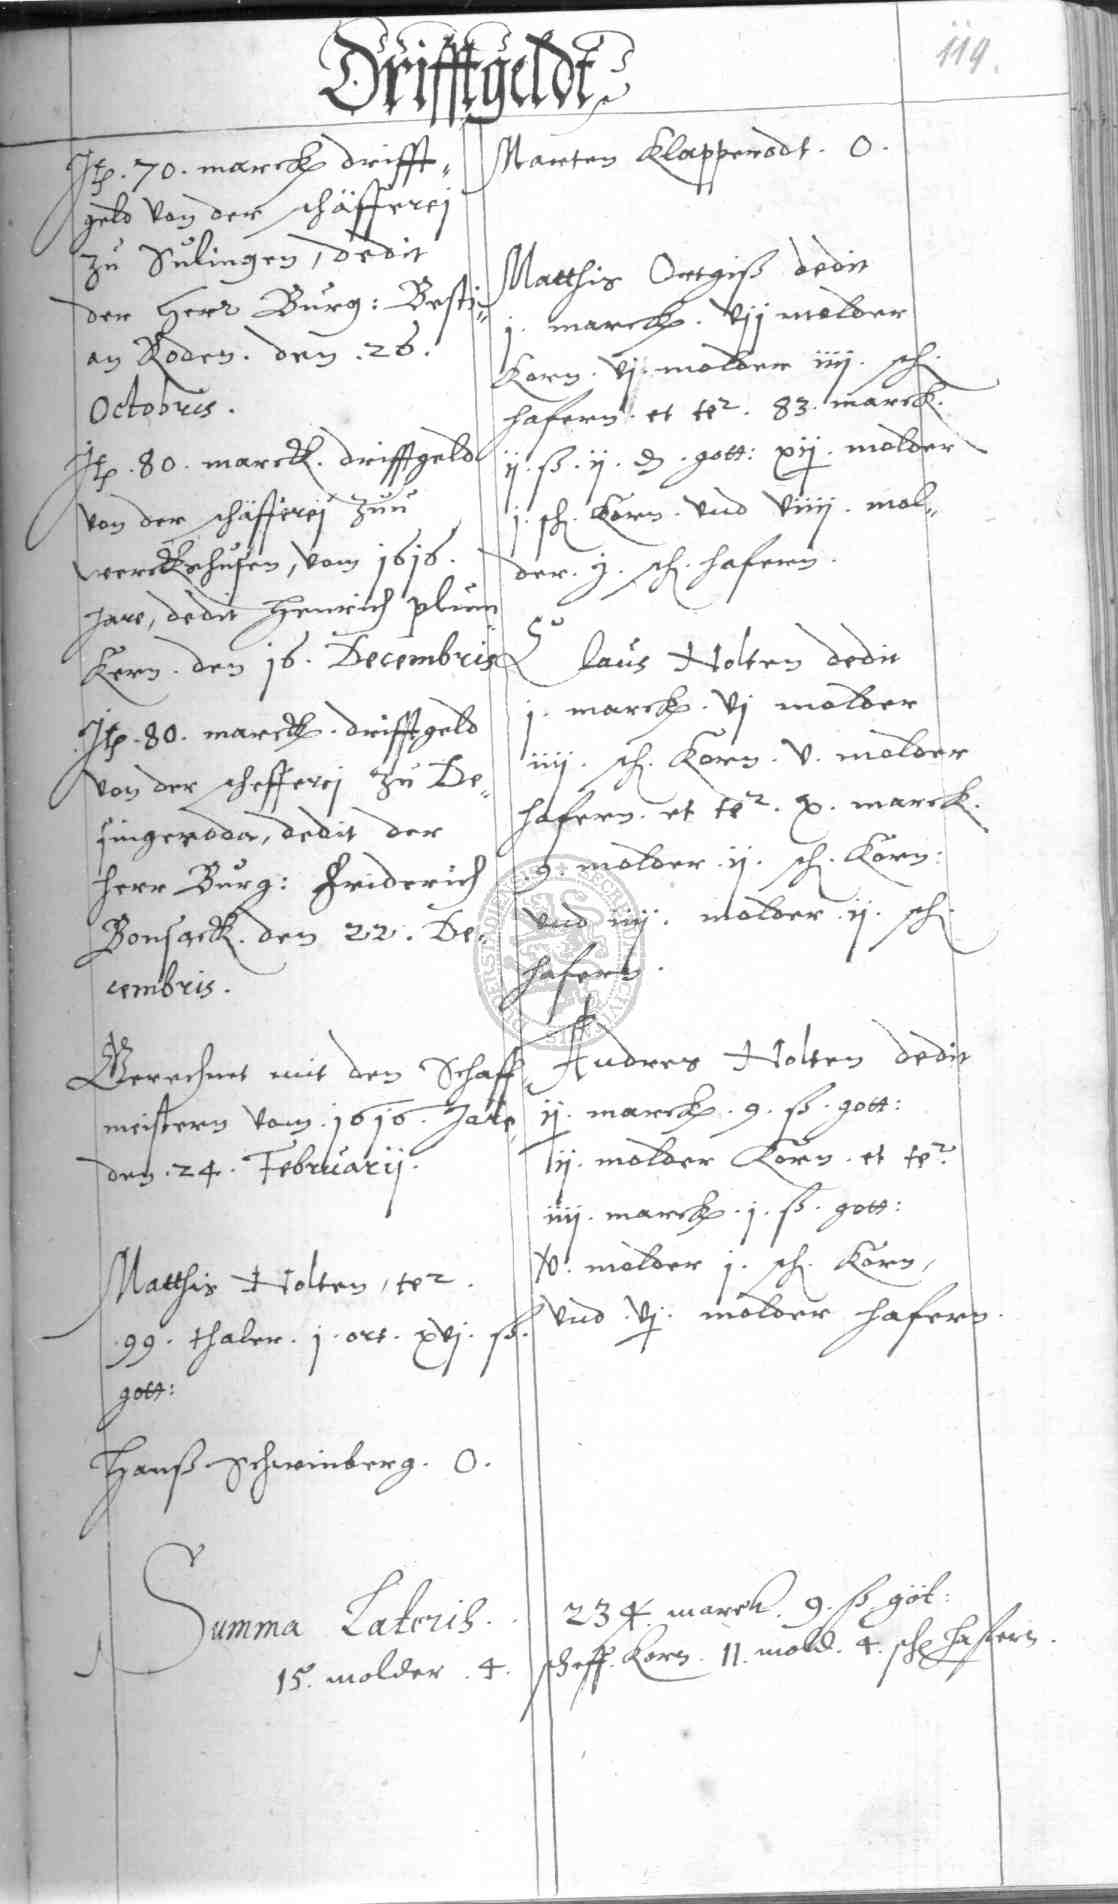 119.
Drifftgeldt
Itē. 70. marck drifft-
geld von der schäfferej
zu Sülingen, dedit
der Herr Burg: Basti-
an Roden. den .26.
Octobris.
Itē. 80. marck. drifftgeld
von der schäfferej zuu
werckshusen, vom 1616.
Jare, dedit Henrich plüm
Kern. den 16. Decembris
Itē. 80. marck. drifftgeld
von der schefferej zu De-
singeroda, dedit der
herr Burg: Friderich
Bonsack. den 22. De-
cembris.
Gerechnet mit den Schaff
meistern vom 1616. Jare,
den .24. Februarij.
Matthis Nolten, ter.
99. thaler. j. ort. xvj. ß.
gott:
Hanß Schwinberg. 0.
Marten Klapperodt. 0.
Matthis Ortgiß dedit
j. marck. vij molder
Korn. vj. molder iiij. sch.
hafern. et ter. 83. marck.
ij. ß. ij. d. gott: xij. molder
j. sch. Korn. vnd viiij. mol-
der. j. sch. hafern.
Claus Nolten dedit
j. marck. vj molder
iiij. sch. Korn. v. molder
hafern. et ter. x. marck.
.9. molder. ij. sch. Korn:
vnd iiij. molder. ij. sch.
hafern.
Andres Nolten dedit
ij. marck. 9. ß. gott:
ij. molder Korn. et ter.
iiij. marck. j. ß. gott:
v. molder j. sch. Korn,
vnd vj. molder hafern.
Summa Lateris. 234 marck. 9. ß. göt:
15. molder .4. scheff. Korn. 11. mold. 4. sch hafern.